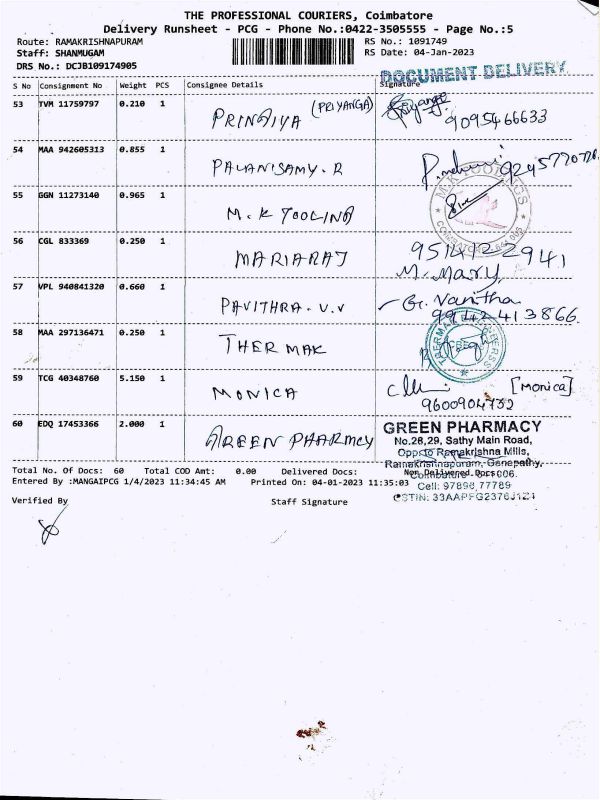 THE PROFESSIONAL COURIERS, Coimbatore
Delivery Runsheet - PCG - Phone No.:0422-3505555 - Page No.:5
Route: RAMAKRISHNAPURAM
RS No.: 1091749
Staff: SHANMUGAM
RS Date: 04-Jan-2023
DRS No.: DCJB109174905
DOCUMENT DELIVERY
S No Consignment No Weight PCS Consignee Details Signature
53 TVM 11759797 0.210 1 PRINGIYA (PRIYANGA) Priyanga
9095466633
54 MAA 942605313 0.855 1 PALANISAMY. R
55 GGN 11273140 0.965 1 M. K TOOLING
M.K. TOOLINGS
COIMBATORE
56 CGL 833369 0.250 1 MARIARAJ 9514122941
M. Mary
57 VPL 940841320 0.660 1 PAVITHRA. V. V G. Vanitha
9942413866
58 MAA 297136471 0.250 1 THERMAK
CBE
59 TCG 40348760 5.150 1 MONICA [Monica]
9600904752
60 EDQ 17453366 2.000 1 GREEN PHARMCY
GREEN PHARMACY
No.28,29, Sathy Main Road,
Opp to Ramakrishna Mills,
Ramakrishnapuram, Ganapathy,
Total No. Of Docs: 60 Total COD Amt: 0.00 Delivered Docs: Non Delivered Docs:
Coimbatore - 641 006.
Entered By :MANGAIPCG 1/4/2023 11:34:45 AM Printed On: 04-01-2023 11:35:03
Cell: 97896 77789
GSTIN: 33AAPFG2376J1Z1
Verified By
Staff Signature